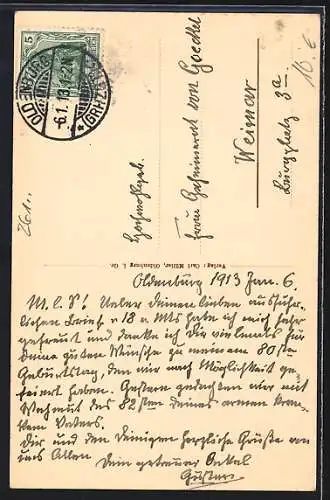 OLDENBURG
(GRHZT.)
-6.1.13.
5
10.6
Hochwohlgeb.
Frau Geheimerat von Goeckel
Weimar
Burgplatz 3a
Verlag Carl Müller, Oldenburg i. Gr.
Oldenburg 1913 Jan. 6.
M. l. S! Ueber deinen lieben ausführ-
lichen Brief v 18 v Mts habe ich mich sehr
gefreut und danke ich Dir vielmals für
Deine guten Wünsche zu meinem 80sten
Geburtstag, den wir nach Möglichkeit ge-
feiert haben. Gestern gedachten wir mit
Wehmut des 82sten deines armen kran-
ken Vaters.
Dir und den Deinigen herzliche Grüße von
uns Allen
Dein getreuer Onkel
Gustav